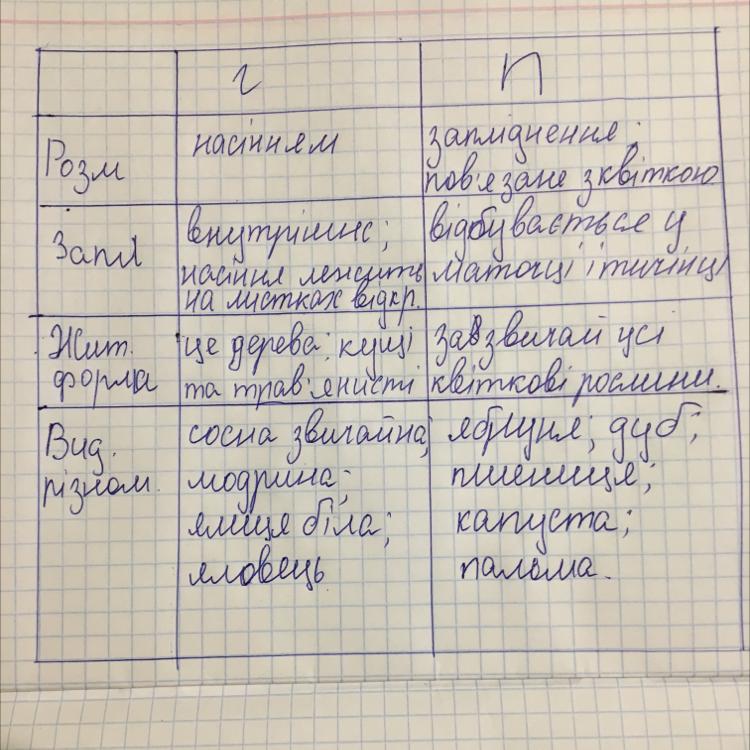 Г
П
Розм
насінням
запліднення
пов'язане з квіткою
Запл
внутрішнє;
насіння лежить
на листках відкр.
відбувається у
маточці і тичінці
Жит.
форма
це дерева; кущі
та трав'янисті
зазвичай усі
квіткові рослини.
Вид.
різном.
сосна звичайна;
модрина;
ялиця біла;
яловець
яблуня; дуб;
пшениця;
капуста;
пальма.